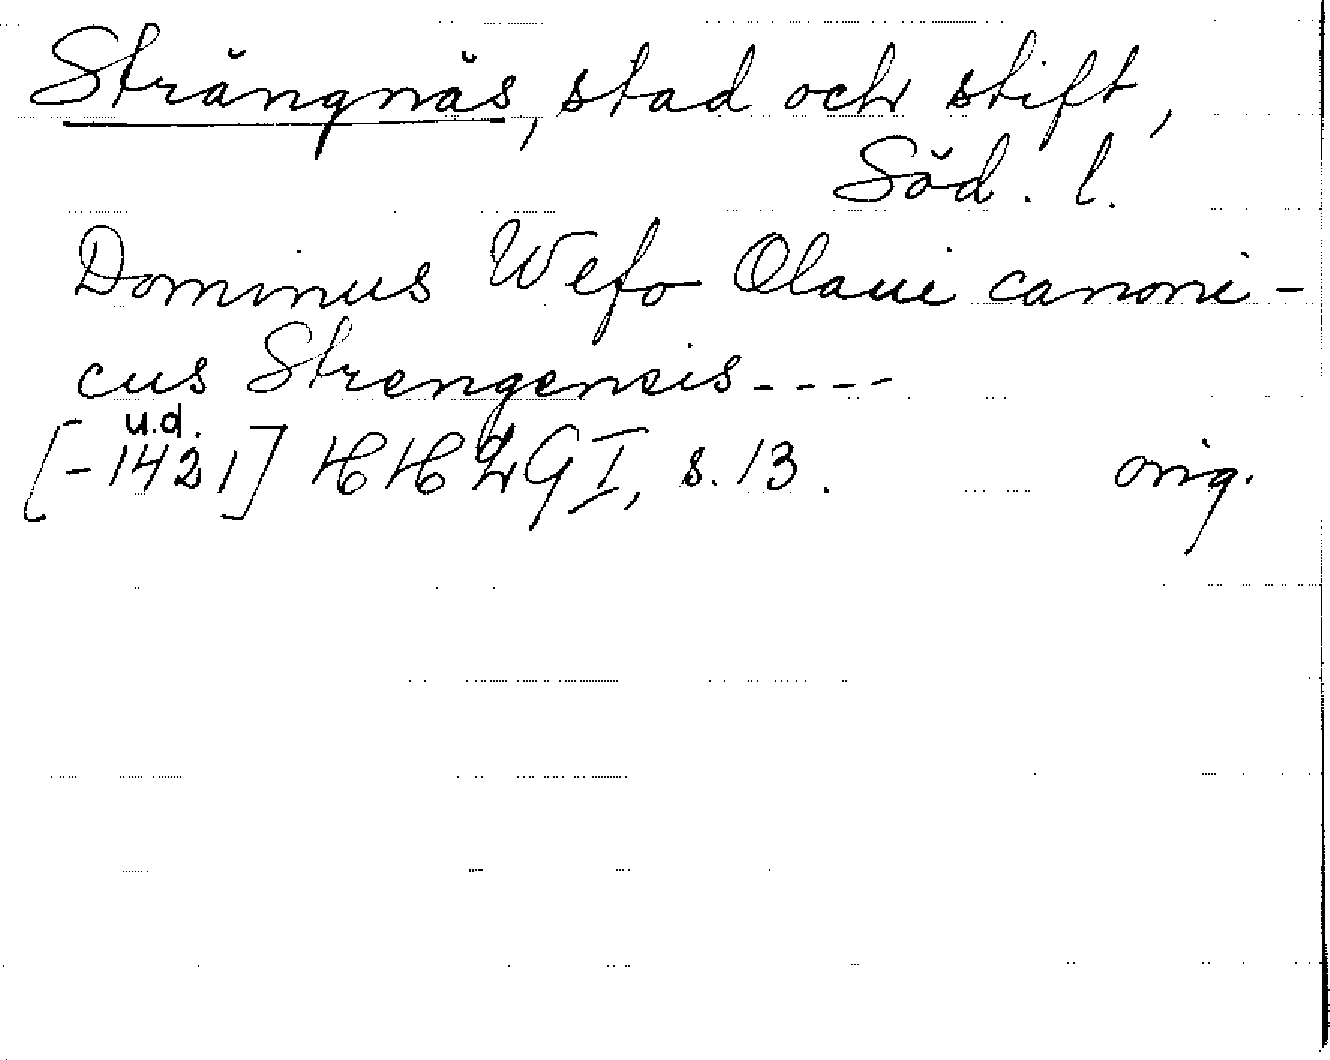 Strängnäs, stad och stift,
Söd. l.
Dominus Wefo Olaui canoni-
cus Strengensis----
u.d.
[-1421] HHLGI, s. 13. orig.